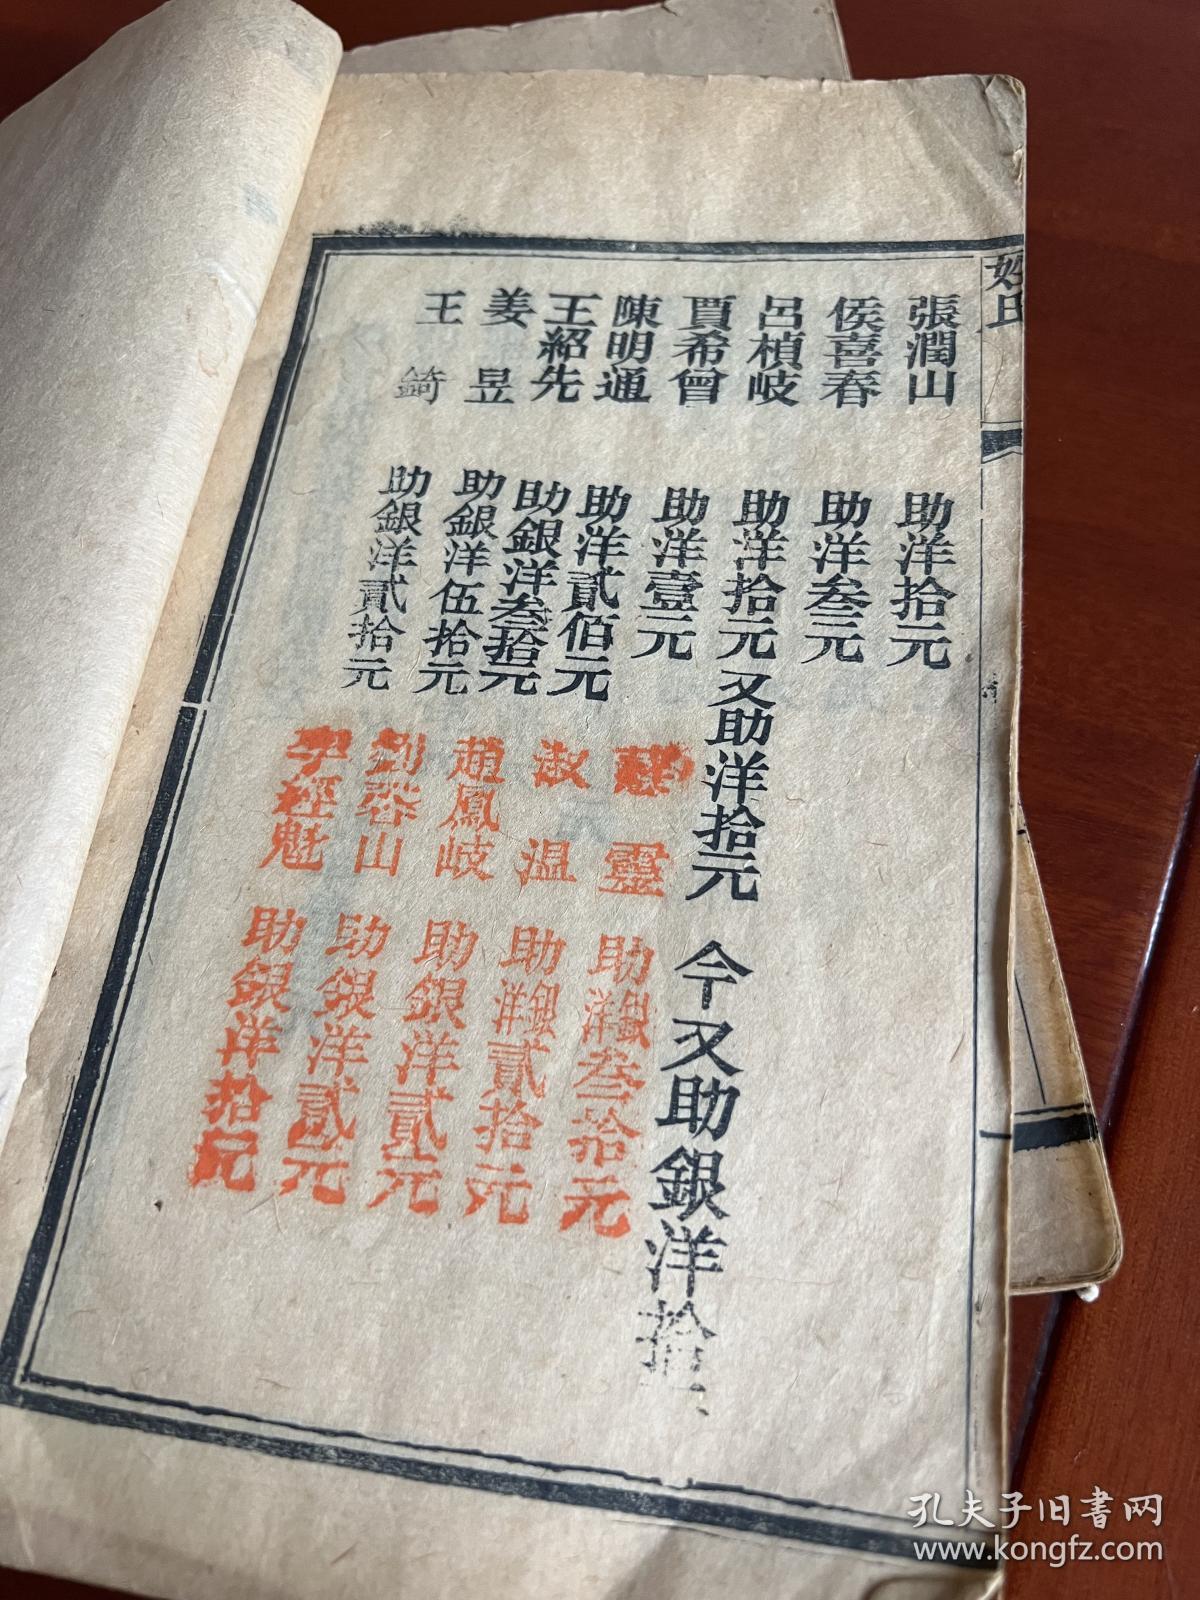 姓氏
張潤山 助洋拾元
侯喜春 助洋叁元
呂楨岐 助洋拾元 又助洋拾元 今又助銀洋拾
賈希曾 助洋壹元
陳明通 助洋貳佰元
王紹先 助銀洋叁拾元
姜昱 助銀洋伍拾元
王錡 助銀洋貳拾元
靈 助銀洋叁拾元
淑温 助銀洋貳拾元
趙鳳岐 助銀洋貳元
劉春山 助銀洋貳元
李經魁 助銀洋拾元
孔夫子旧書网
www.kongfz.com